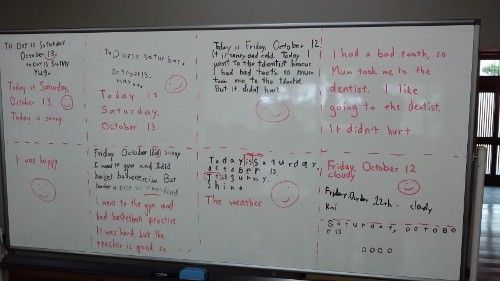 To Day is Saturday
October 13.
toDay is sunny
Yug.
Today is Saturday
October 13.
Today is sunny
ToDay is Saturday.
October 13.
Today is
Saturday.
October 13.
Today is Friday, October 12
It is sunny and cold. Today I
went to the tdentist
I had bad tooth so mum
took me to the dentist
But it didnt hurt.
I had a bad tooth, so
Mum took me to the
dentist. I like
going to the dentist.
It didn't hurt
I was happy.
Friday October 12 sunny
I went to gym and I did
But
I went to the gym and
had basketball practice.
It was hard but the
teacher is good, so
Today is Saturday.
October 13
It is sunny.
The weather
Friday, October 12
cloudy
12th. cloudy
Saturday, October
13